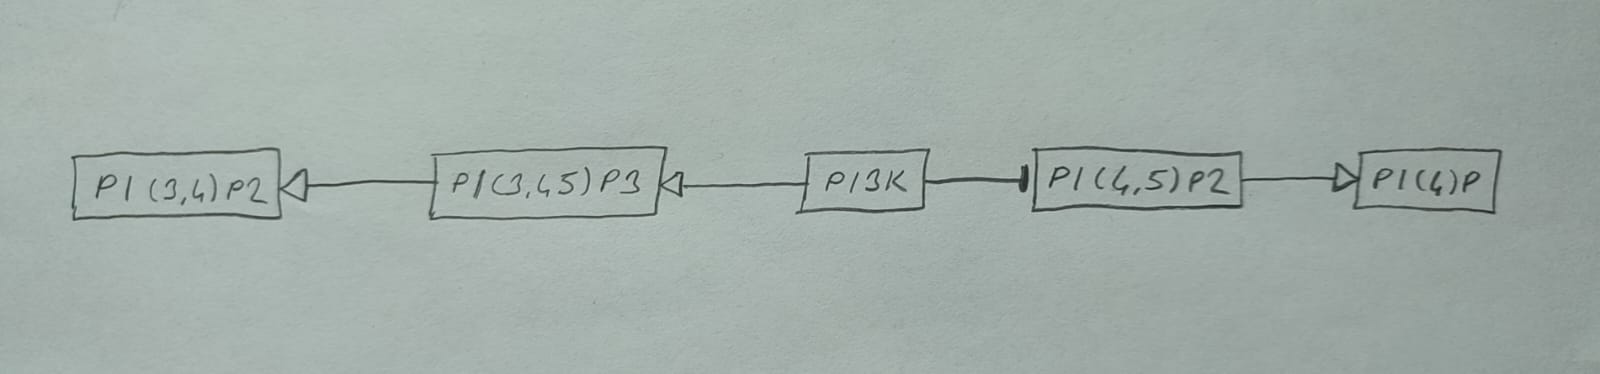 PI(3,4)P2 PI(3,45)P3 PI3K PI(4,5)P2 PI(4)P